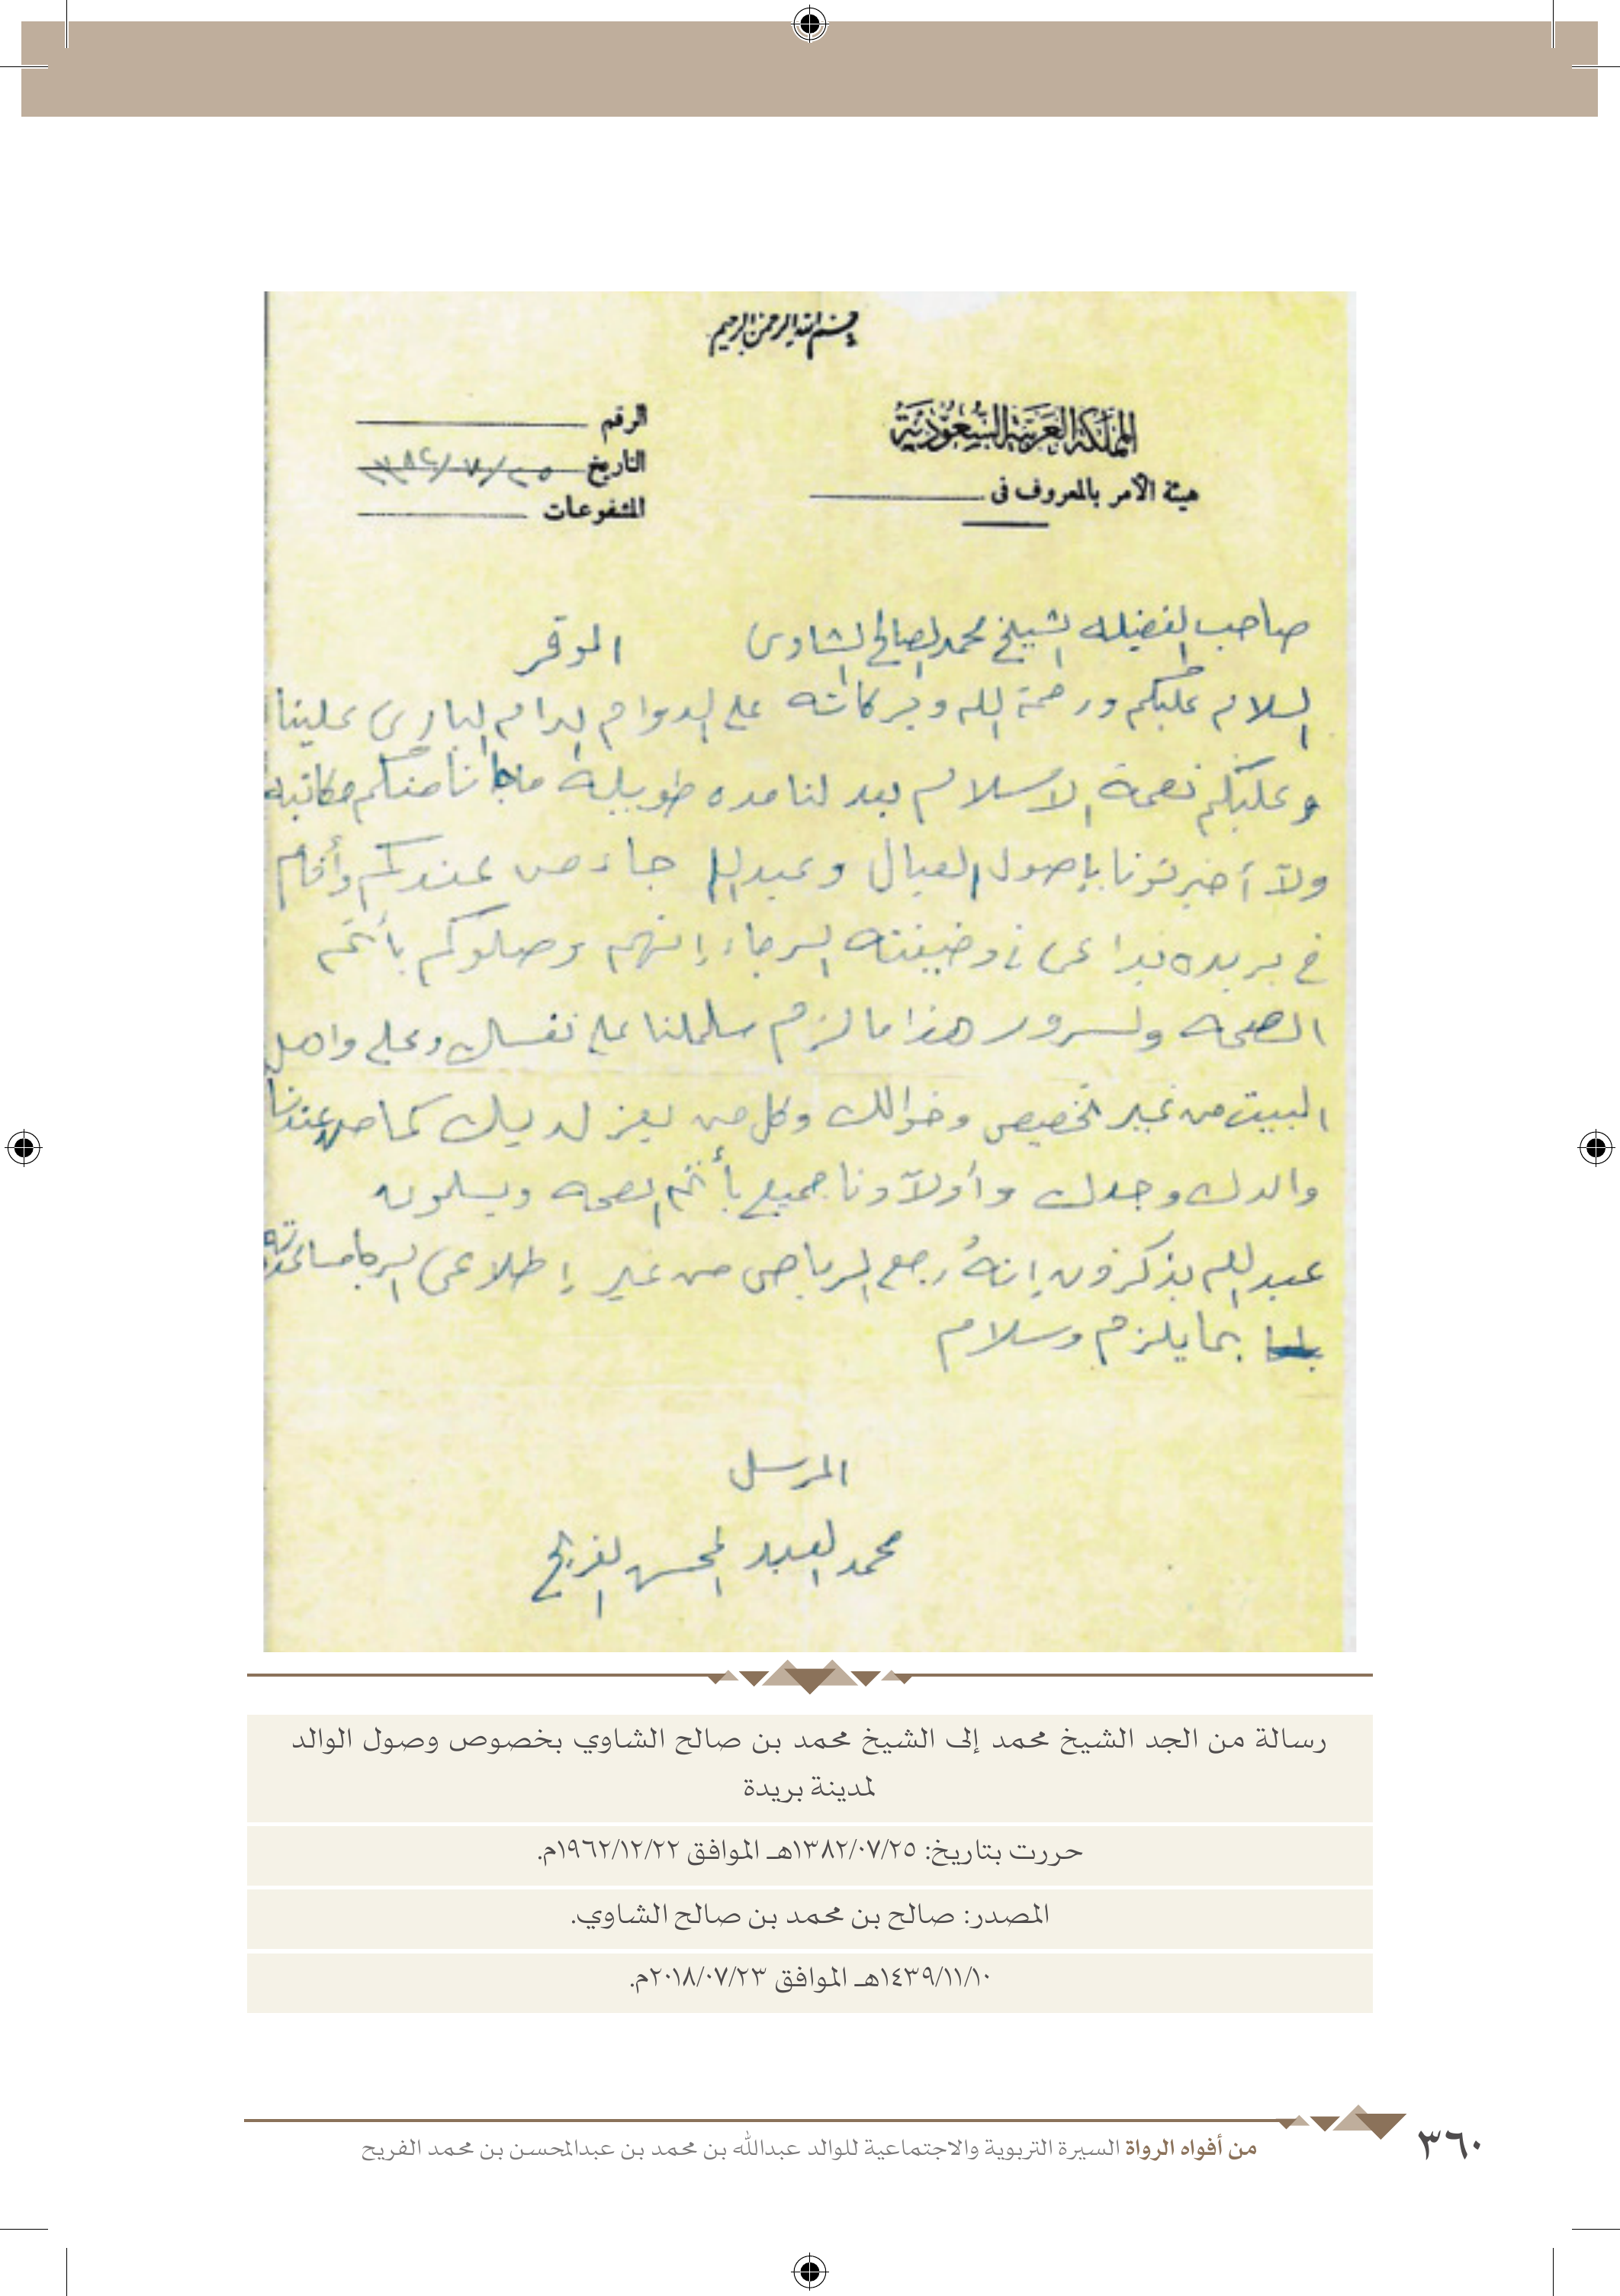 بسم الله الرحمن الرحيم
المملكة العربية السعودية
هيئة الأمر بالمعروف في
الرقم
التاريخ ١٣٨٢/٧/٢٥
المشفوعات
صاحب الفضيله الشيخ محمد الصالح الشاوى الموقر
السلام عليكم ورحمة الله وبركاته على الدوام ادام البارى علينا
وعليكم نعمة الاسلام بعد لنا مده طويلة ماجانا منكم مكاتبه
ولآ أخبرتونا بإصول العيال وعبدالله جاء من عندكم وأقام
في بريده في وضيفته الرجاء إنهم وصلوكم بأتم
الصحه ولسرور هذا مالزم سلملنا على نفسك وعلى واهل
البيت من غير تخصيص وخوالك وكل من يعز لديك كما من عندنا
والدك وجدك وأولآدنا جميع بأتم الصحه ويسلمون
عبدالله يذكرون إنهُ رجع الرياض من غير إطلاعى
بما يلزم وسلام
المرسل
محمد العبد المحسن الفريح
رسالة من الجد الشيخ محمد إلى الشيخ محمد بن صالح الشاوي بخصوص وصول الوالد
لمدينة بريدة
حررت بتاريخ: ١٣٨٢/٠٧/٢٥هـ الموافق ١٩٦٢/١٢/٢٢م.
المصدر: صالح بن محمد بن صالح الشاوي.
١٤٣٩/١١/١٠هـ الموافق ٢٠١٨/٠٧/٢٣م.
من أفواه الرواة السيرة التربوية والاجتماعية للوالد عبدالله بن محمد بن عبدالمحسن بن محمد الفريح
٣٦٠